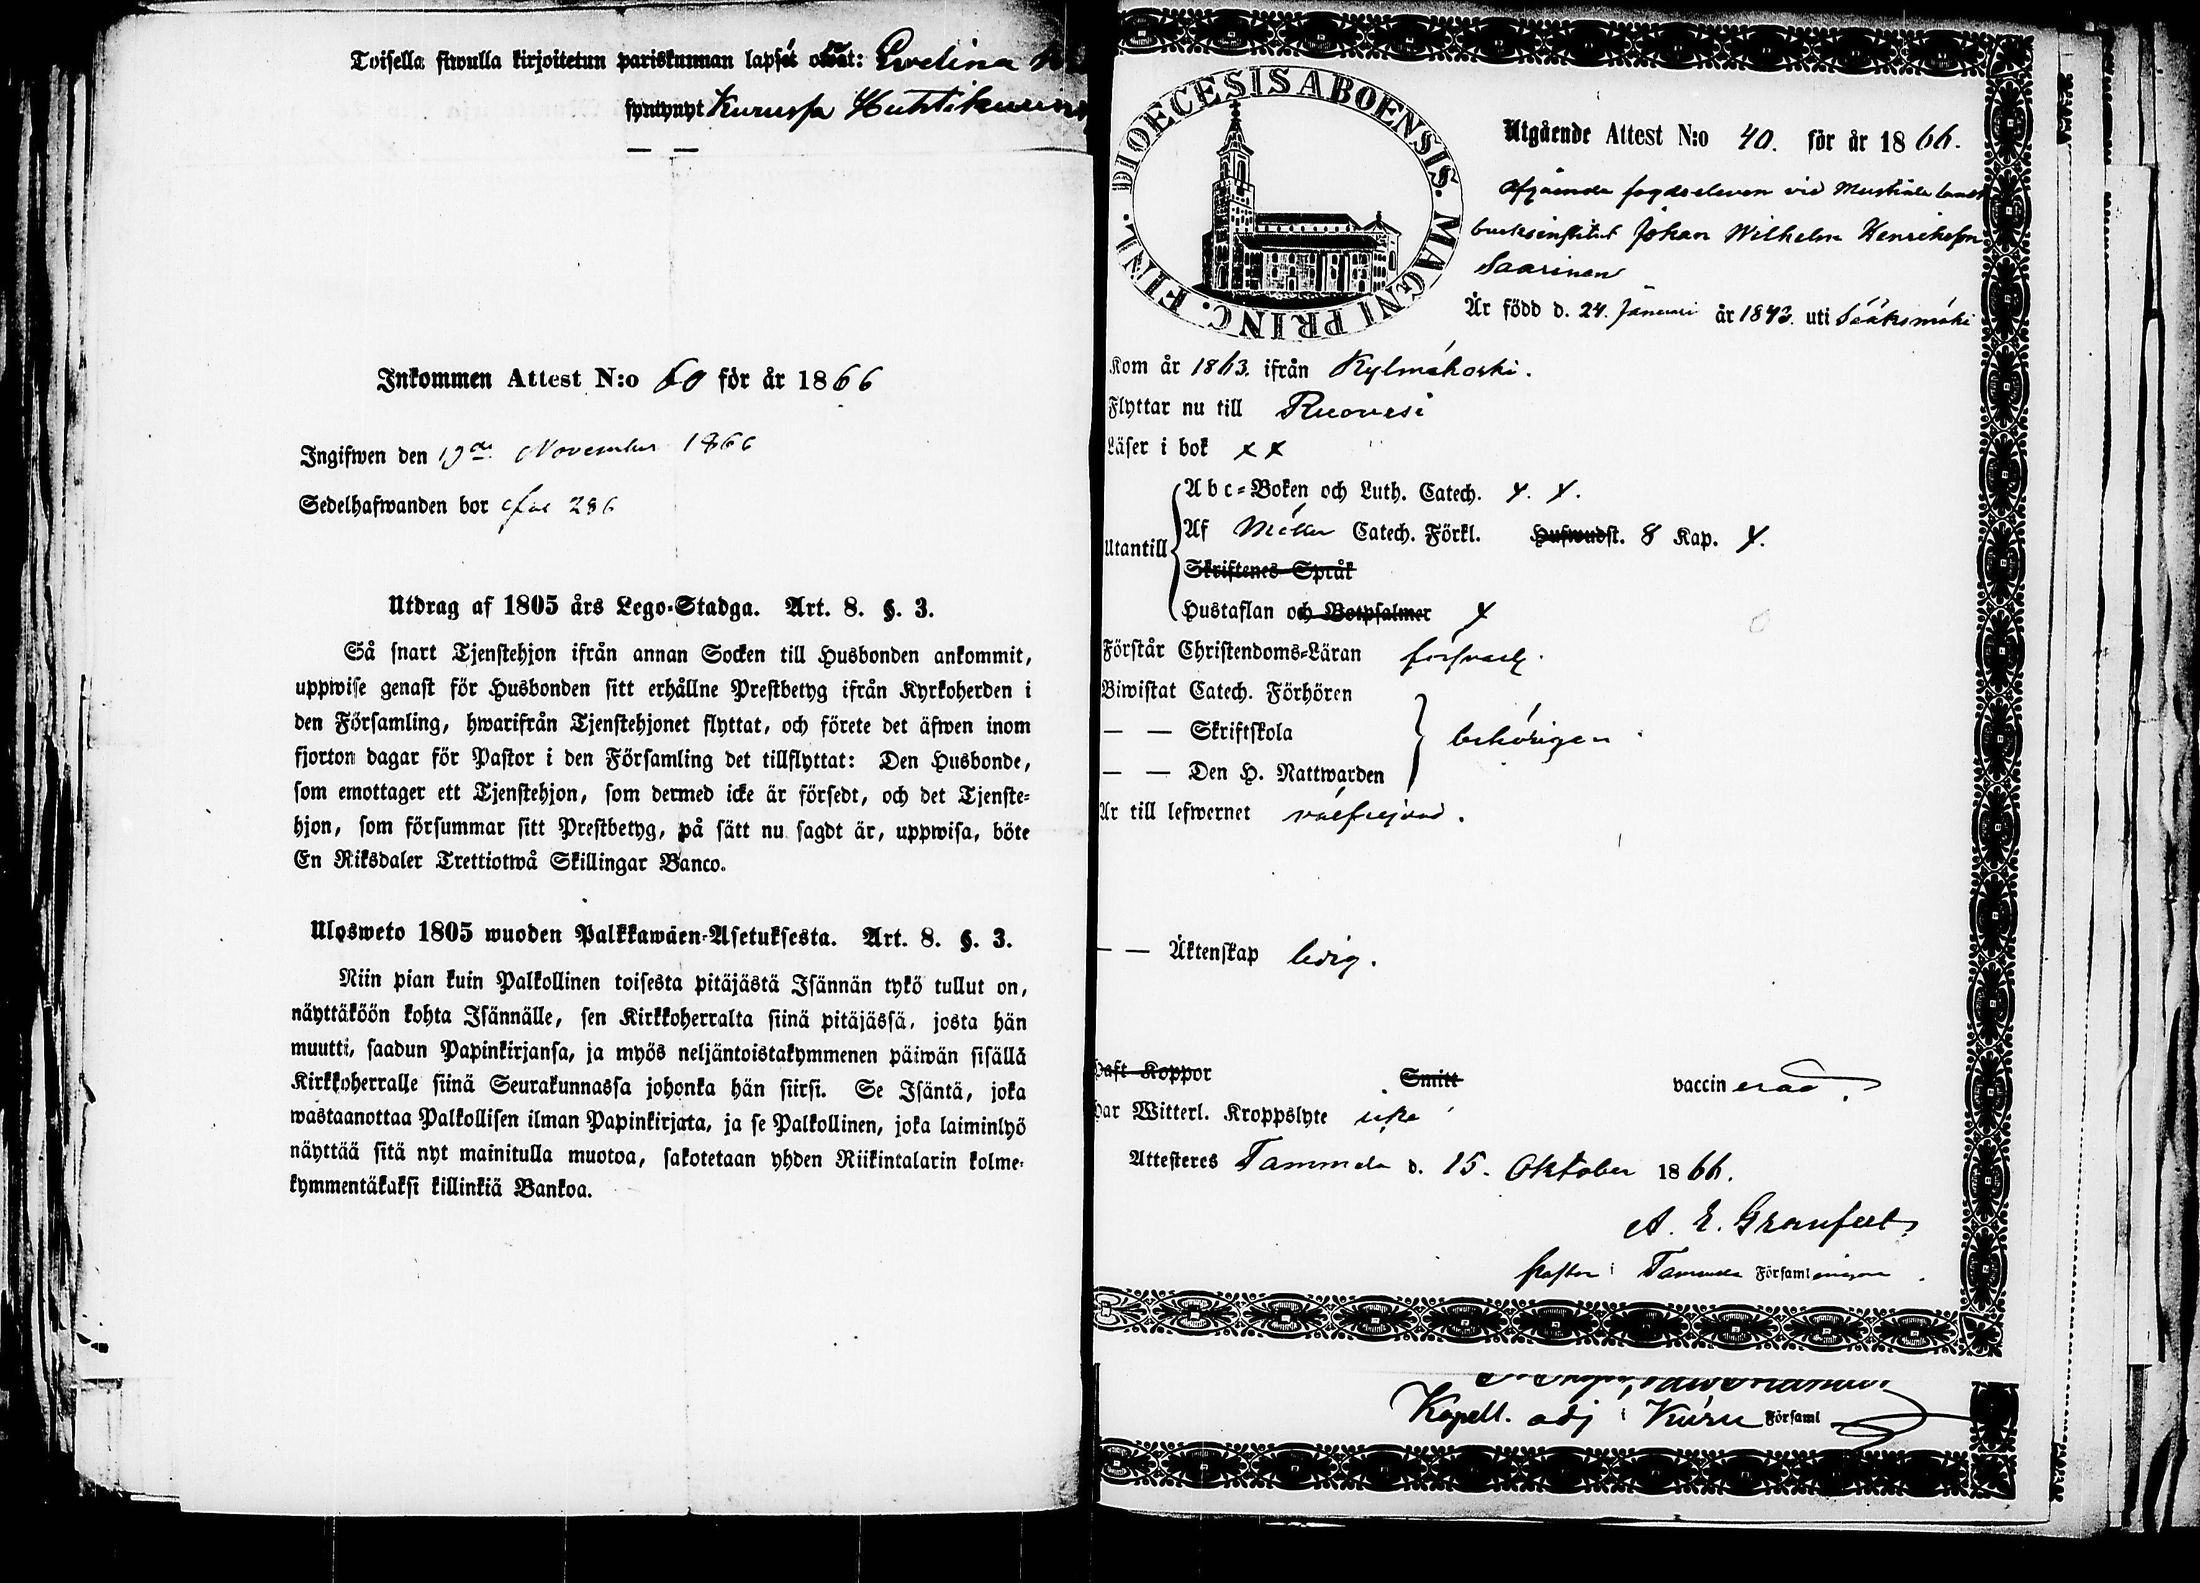 Toisella siwulla kirjoitetun pariskunnan lapset owat: Ewelina
syntynyt Kurussa Huhtikuun
Inkommen Attest N:o 60 för år 1866
Ingifwen den 19de November 1866
Sedelhafwanden bor fol 286
Utdrag af 1805 års Lego-Stadga. Art. 8. §. 3.
Så snart Tjenstehjon ifrån annan Socken till Husbonden ankommit,
uppwise genast för Husbonden sitt erhållne Prestbetyg ifrån Kyrkoherden i
den Församling, hwarifrån Tjenstehjonet flyttat, och förete det äfwen inom
fjorton dagar för Pastor i den Församling det tillflyttat: Den Husbonde,
som emottager ett Tjenstehjon, som dermed icke är försedt, och det Tjenste-
hjon, som försummar sitt Prestbetyg, på sätt nu sagdt är, uppwisa, böte
En Riksdaler Trettiotwå Skillingar Banco.
Ulosweto 1805 wuoden Palkkawäen-Asetuksesta. Art. 8. §. 3.
Niin pian kuin Palkollinen toisesta pitäjästä Isännän tykö tullut on,
näyttäköön kohta Isännälle, sen Kirkkoherralta siinä pitäjässä, josta hän
muutti, saadun Papinkirjansa, ja myös neljäntoistakymmenen päiwän sisällä
Kirkkoherralle siinä Seurakunnassa johonka hän siirsi. Se Isäntä, joka
wastaanottaa Palkollisen ilman Papinkirjata, ja se Palkollinen, joka laiminlyö
näyttää sitä nyt mainitulla muotoa, sakotetaan yhden Riikintalarin kolme-
kymmentäkaksi killinkiä Bankoa.
DIOECESIS ABOENSIS. MAGNI PRINC. FINL.
Utgående Attest N:o 40. för år 1866.
Afgående fogdeeleven vid Mustiala landt
bruksinstitut Johan Wilhelm Henriksson
Saarinen
Är född d. 24. Januari år 1843. uti Sääksmäki
Kom år 1863. ifrån Kylmäkoski.
Flyttar nu till Ruovesi
Läser i bok x x
Utantill
Abc-Boken och Luth. Catech. x. x.
Af Möller Catech. Förkl. Hufwudst. 8 Kap. x.
Skriftenes Språk
Hustaflan och Botpsalmer x
Förstår Christendoms-Läran försvarl.
Biwistat Catech. Förhören
— — Skriftskola behörigen
— — Den H. Nattwarden
Är till lefwernet välfrejdad.
— — Äktenskap ledig.
Haft Koppor Smitt vaccinerad.
Har Witterl. Kroppslyte icke
Attesteres Tammela d. 15. Oktober 1866.
A. E. Granfelt
Pastor i Tammela Församlingen
Kapell. adj i Kuru Församl